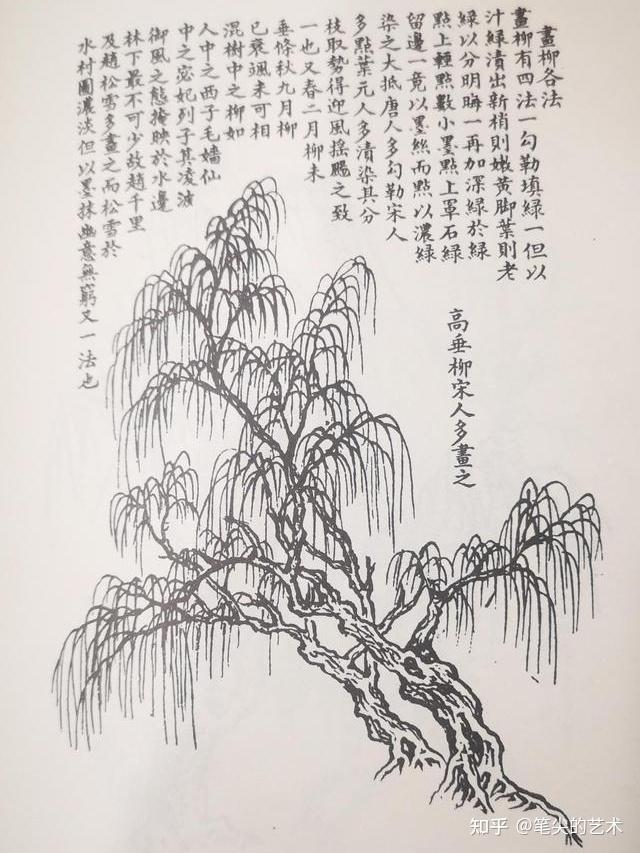 畫柳各法
畫柳有四法一勾勒填綠一但以
汁綠漬出新梢則嫩黃脚葉則老
綠以分明晦一再加深綠於綠
點上輕點數小墨點上罩石綠
留邊一竟以墨絲而點以濃綠
染之大抵唐人多勾勒宋人
多點葉元人多漬染其分
枝取勢得迎風搖颺之致
一也又春二月柳未
垂條秋九月柳
已衰颯未可相
混樹中之柳如
人中之西子毛嬙仙
中之宓妃列子其凌波
御風之態掩映於水邊
林下最不可少故趙千里
及趙松雪多畫之而松雪於
水村圖濃淡但以墨抹幽意無窮又一法也
高垂柳宋人多畫之
知乎 @笔尖的艺术